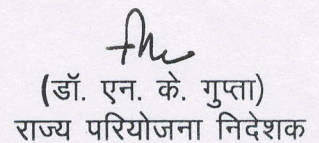 (डॉ. एन. के. गुप्ता)
राज्य परियोजना निदेशक